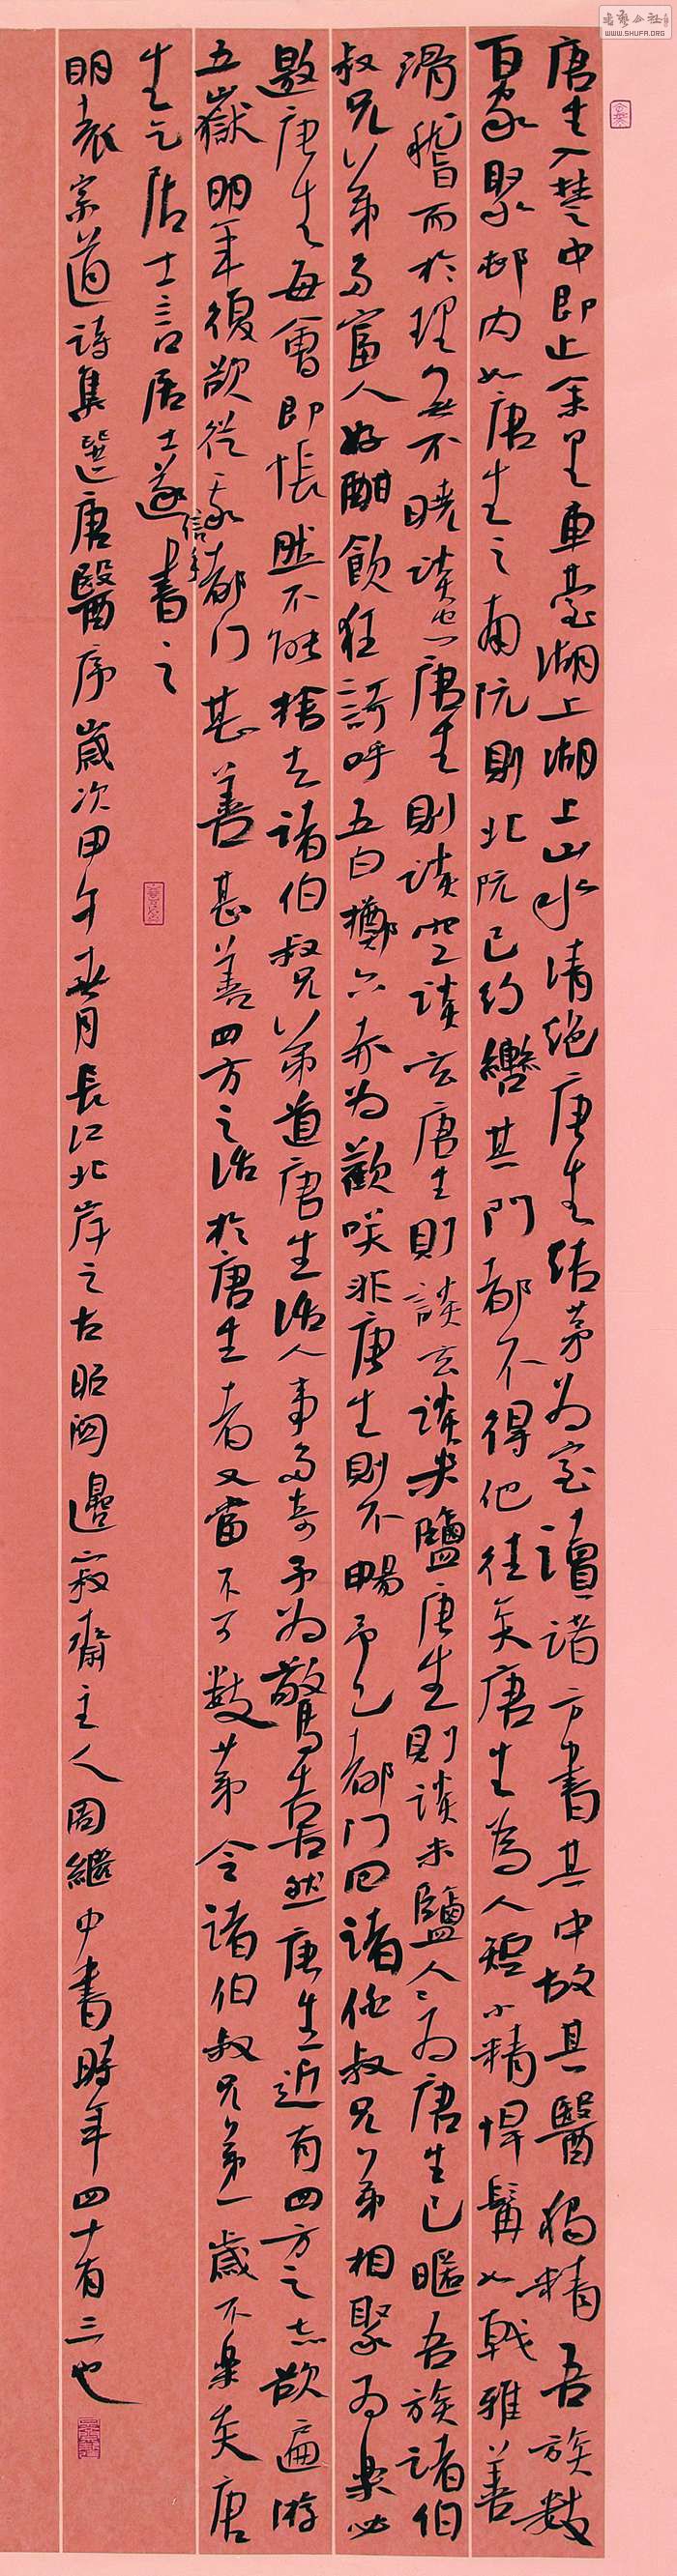 唐生入楚中即止余里車臺湖上湖上山水清絕唐生結茅為室讀諸方書其中故其醫獨精吾族數
百家聚邨内如唐生之南阮則北阮已約轡其門都不得他往矣唐生為人短小精悍髯如戟雅善
滑稽而於理無不曉談空唐生則談空談玄唐生則談玄談米鹽唐生則談米鹽人人為唐生已暱吾族諸伯
叔兄弟多富人好酣飲狂謌呼五白擲六赤為歡咲非唐生則不暢予之都門回諸伯叔兄弟相聚為樂必
邀唐生每會即悵然不能捨去諸伯叔兄弟道唐生活人事多奇予為驚嘉然唐生近有四方之志欲遍游
五嶽明年復欲從我都門甚善甚善四方之活於唐生者又當不可數第令諸伯叔兄弟一歲不樂矣唐
生乞居士言居士遂信手書之
明袁宗道詩集選唐醫序歲次甲午春月長江北岸之古昭關邊寂齋主人周繼中書時年四十有三也
WWW.SHUFA.ORG